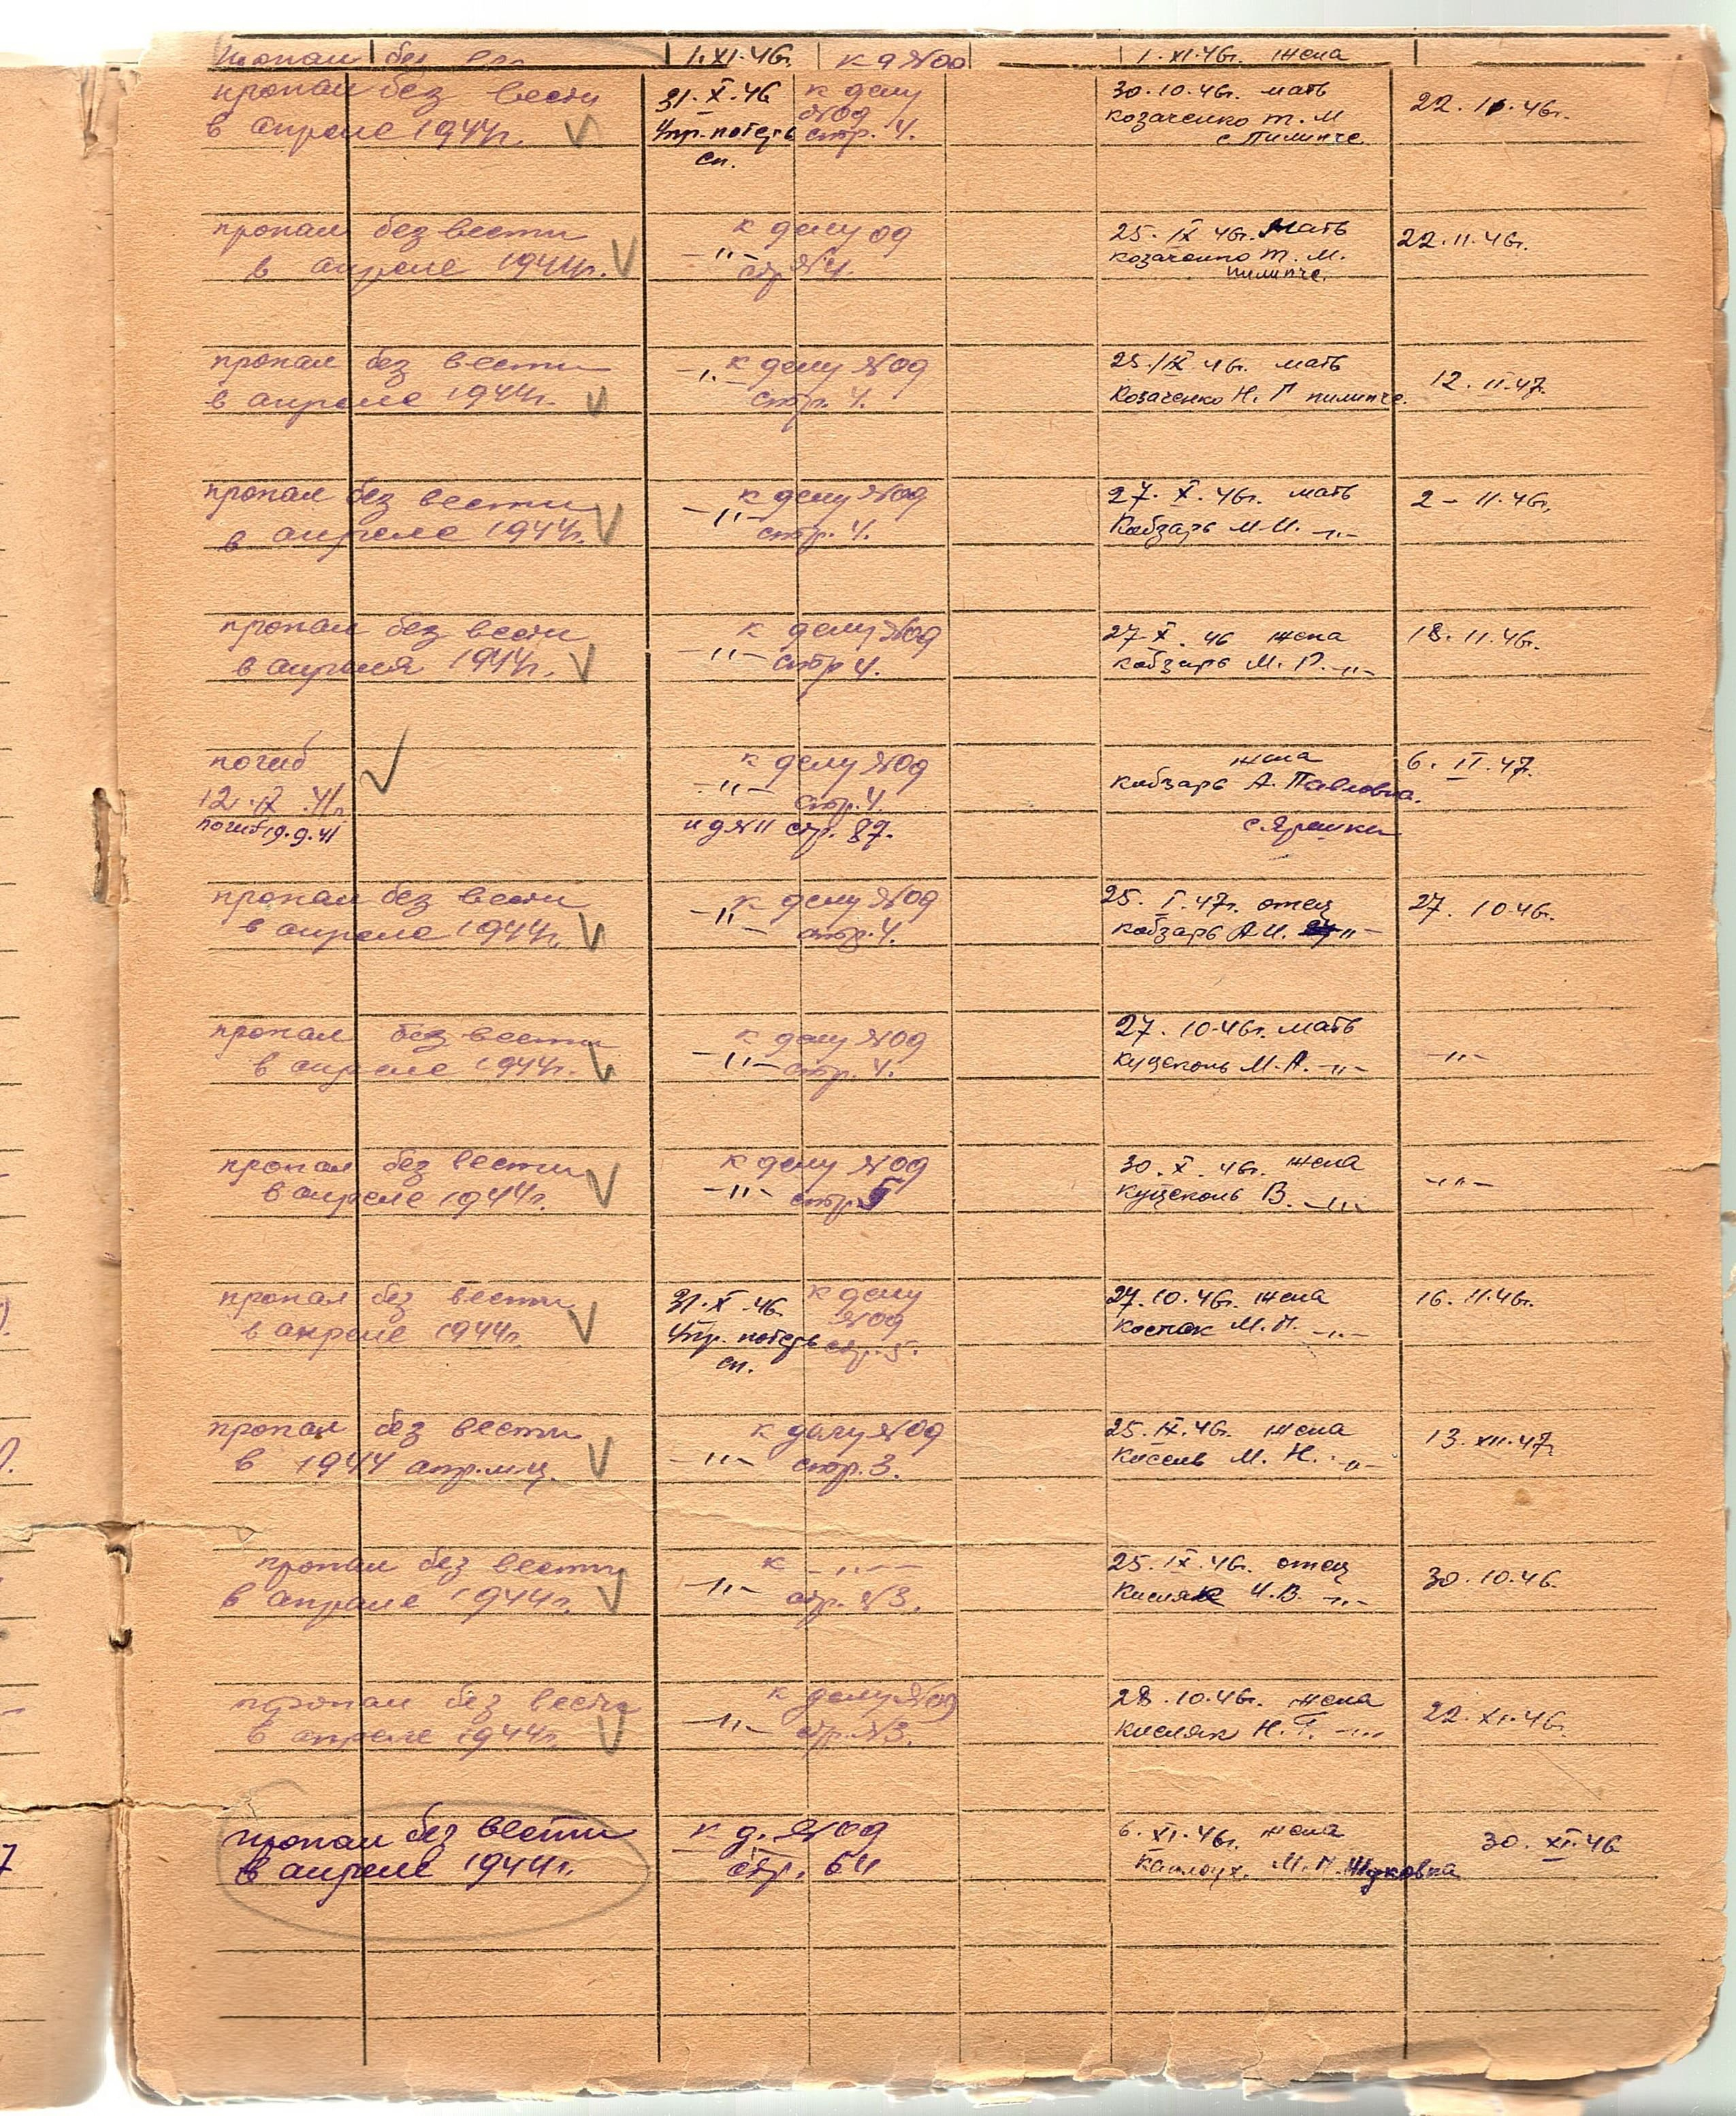 пропал без 1.XI.46г. к д №00 1.XI.46г. жена
пропал без вести 31.X.46 к делу 30.10.46г. мать 22.11.46г.
№09 Козаченко Т. М
в апреле 1944г. Упр. потерь стр. 4. с. Пилипче.
сп.
пропал без вести к делу 09 25.IX 46г. мать 22.11.46г.
в апреле 1944г. -"- стр №4. Козаченко Т. М.
пилипче.
пропал без вести -"- к делу №09 25.IX 46г. мать 12.II.47.
в апреле 1944г. стр. 4. Козаченко Н. Г пилипче.
пропал без вести к делу №09 27.X.46г. мать 2-11.46г.
в апреле 1944г. -"- стр. 4. Кобзарь М И. -"-
пропал без вести к делу №09 27.X.46 жена 18.11.46г.
в апреля 1944г. -"- стр 4. Кобзарь М. Г. -"-
погиб к делу №09 жена 6.II.47.
12.IX.41г -"- стр. 4. Кобзарь А. Павловна.
погиб 19.9.41 и д №11 стр. 87. с. Ярешки
пропал без вести к делу №09 25.I.47г. отец 27.10.46г.
в апреле 1944г. -"- стр. 4. Кобзарь А И. -"-
пропал без вести к делу №09 27.10.46г. мать
в апреле 1944г. -"- стр. 4. М. А. -"- -"-
пропал без вести к делу №09 30.X.46г. жена -"-
в апреле 1944г. -"- стр. 5 В. -"-
пропал без вести 31.X.46. к делу 27.10.46г. жена 16.11.46г.
№09
в апреле 1944г. Упр. потерь стр. 5. М. П. -"-
сп.
пропал без вести к делу №09 25.IX.46г. жена 13.XII.47г
в 1944 апр. м-ц. -"- стр. 3. Кисель М. Н. -"-
пропал без вести к -"- 25.IX.46г. отец 30.10.46.
в апреле 1944г. -"- стр. №3. Кисляк И. В. -"-
пропал без вести к делу №09 28.10.46г. жена 22.XI.46г.
в апреле 1944г. -"- стр. №3. Кисляк Н. Г. -"-
пропал без вести к д. №09 6.XI.46г. жена 30.XI.46
в апреле 1944г. стр. 64 М. П. Жуковка